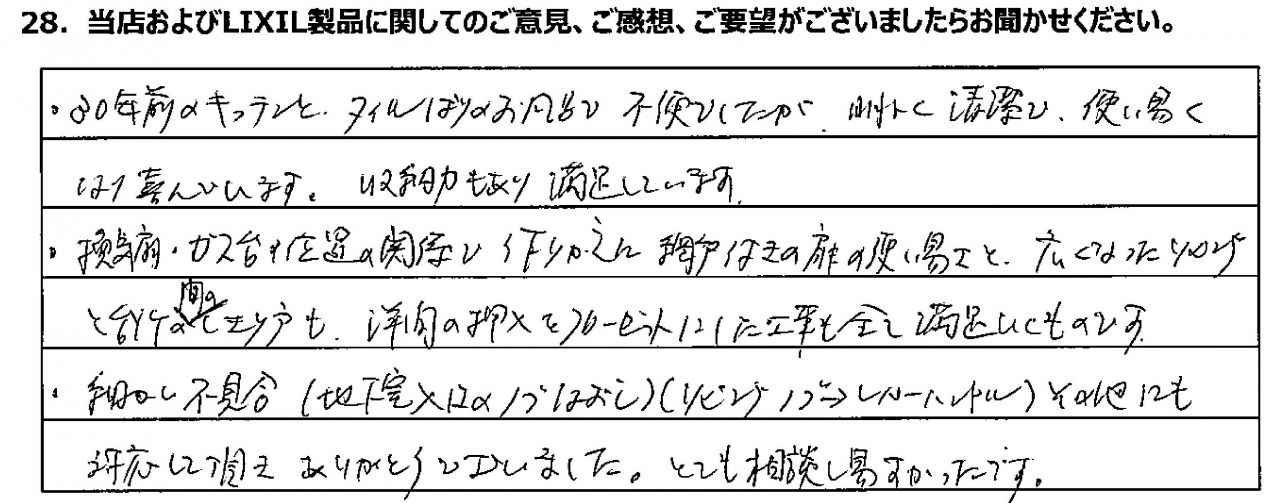 28. 当店およびLIXIL製品に関してのご意見、ご感想、ご要望がございましたらお聞かせください。
・30年前のキッチンと、タイルばりのお風呂で 不便でしたが、明るく 清潔で、使い易く
なり喜んでいます。収納力もあり 満足しています。
・換気扇・ガス台の位置の関係で 作りかえた 網戸付きの扉の使い易さと、広くなったリビング
と台所の間のしきり戸も、洋間の押入をクローゼットにした工事も全て満足いくものです
・細かい不具合 (地下室入口のノブなおし)(リビング ノブ→レバーハンドル) その他にも
対応して頂き ありがとうございました。とても相談し易すかったです。